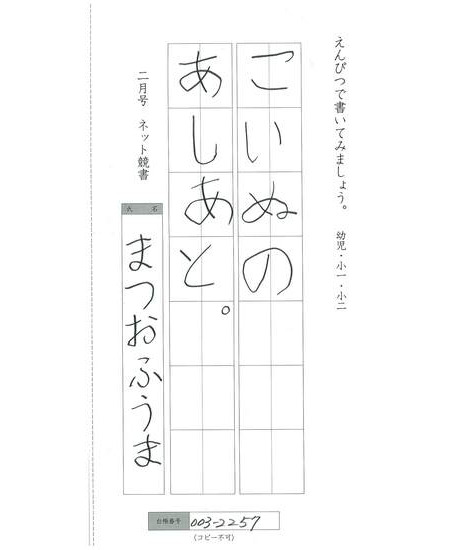 えんぴつで書いてみましょう。 幼児・小一・小二
こいぬの
あしあと。
二月号 ネット競書
氏 名
まつおふうま
台帳番号 003-2257
(コピー不可)